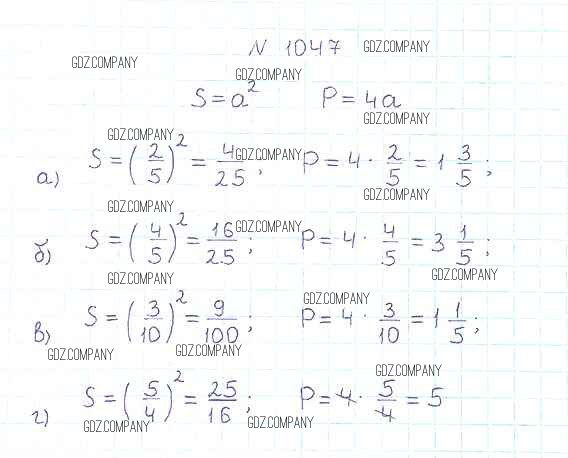 N 1047 GDZ.COMPANY
GDZ.COMPANY
GDZ.COMPANY
S = a² P = 4a
GDZ.COMPANY
GDZ.COMPANY
а) S = (2/5)² = 4/25; P = 4 · 2/5 = 1 3/5;
GDZ.COMPANY
GDZ.COMPANY
GDZ.COMPANY
б) S = (4/5)² = 16/25; P = 4 · 4/5 = 3 1/5;
GDZ.COMPANY
GDZ.COMPANY
GDZ.COMPANY
GDZ.COMPANY
в) S = (3/10)² = 9/100; P = 4 · 3/10 = 1 1/5;
GDZ.COMPANY
GDZ.COMPANY
GDZ.COMPANY
г) S = (5/4)² = 25/16; P = 4 · 5/4 = 5
GDZ.COMPANY
GDZ.COMPANY